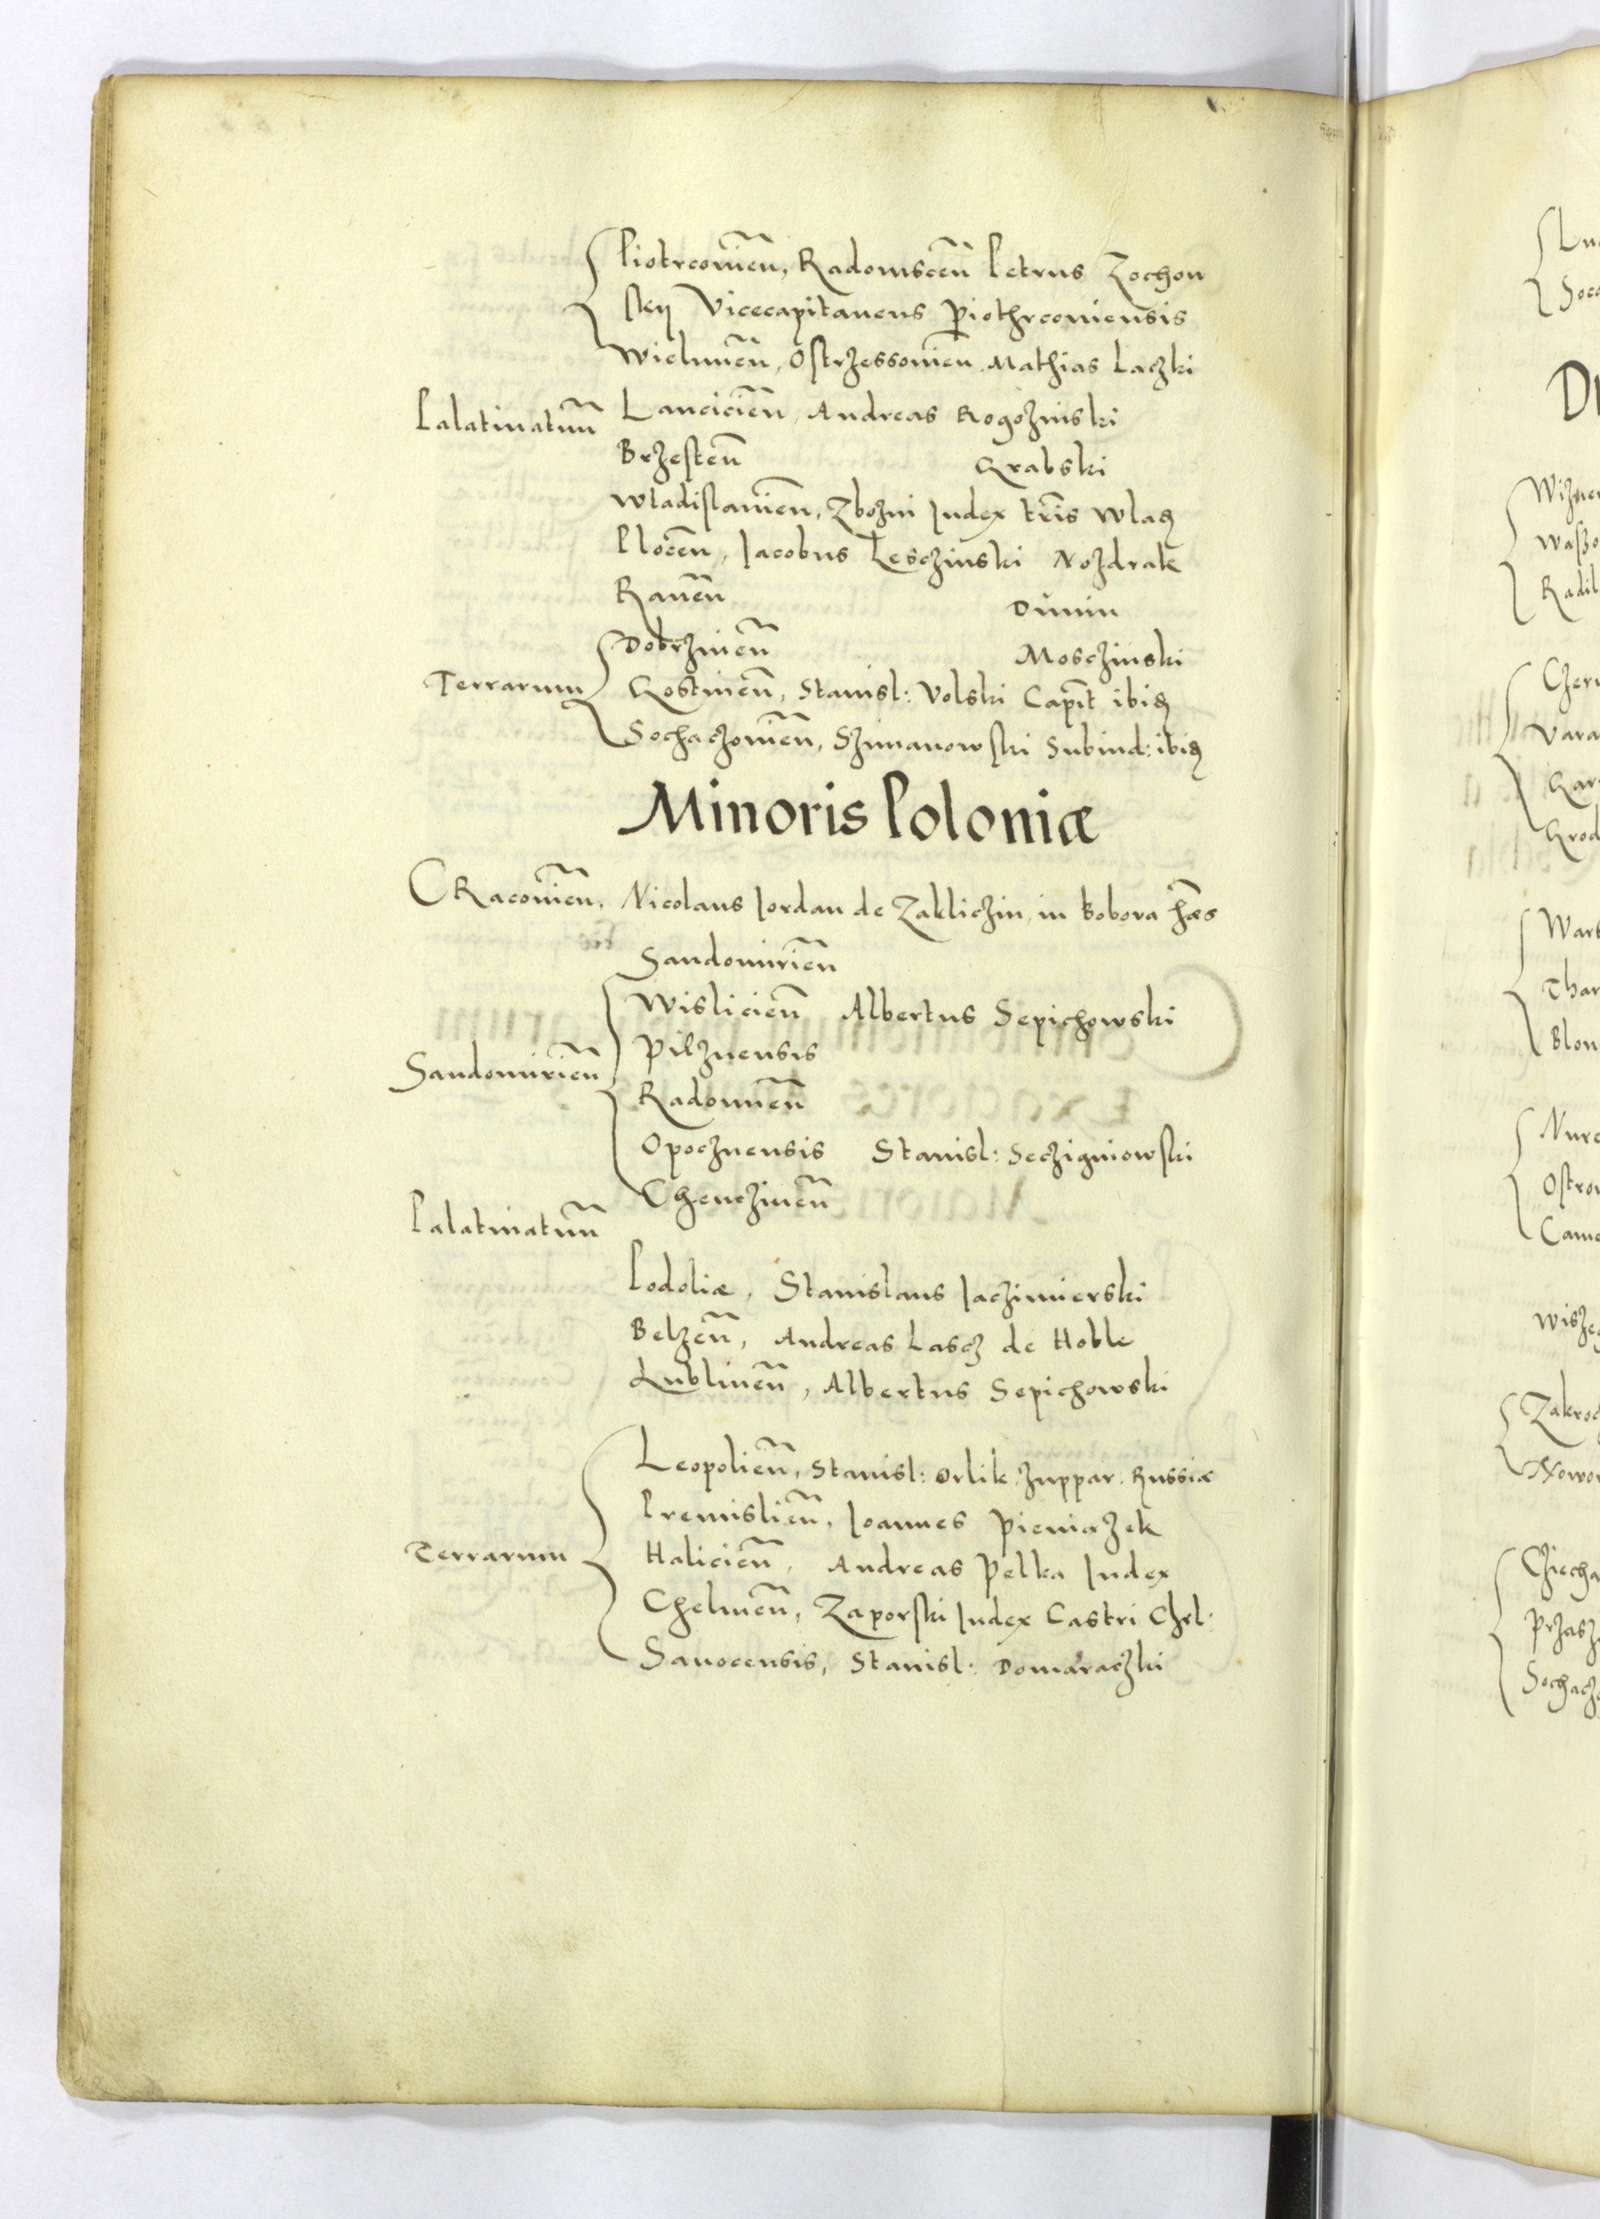 Piotrcovien̄, Radomscen̄ Petrus Zochow
skÿ Vicecapitaneus Piothrcoviensis
Wielunen̄, Ostrzessovien̄ Mathias Laczki
Palatinatuū Lancicien̄, Andreas Rogozinski
Brzesten̄ Grabski
Wladislavien̄, Zbozni Iudex tr̄is Wlad
Plocen̄, Iacobus Lesczinski Nozdrak
Raven̄ Dunin
Dobrzinen̄ Mosczinski
Terrarum Gostinen̄, Stanisl: Volski Capit̄ ibid
Sochaczovien̄, Szimanowski Subiud: ibid
Minoris Poloniæ
CRacovien̄, Nicolaus Iordan de Zakliczin, in Bobova hǣs
Sandomirien̄
Wislicien̄ Albertus Sepichowski
Pilznensis
Sandomirien̄
Radomien̄
Opocznensis Stanisl: Seczigniowski
Chenczinen̄
Palatinatuū
Podoliæ, Stanislaus Iaczimierski
Belzen̄, Andreas Lascz de Hoble
Lublinen̄, Albertus Sepichowski
Leopolien̄, Stanisl: Orlik zuppar. Russiæ
Premislien̄, Ioannes Pieniazek
Terrarum Halicien̄, Andreas Pelka Iudex
Chelmen̄, Zaporski Iudex Castri Chel:
Sanocensis, Stanisl: Domaraczki
Wizne
Radil
Cher
Vara
Gar
Grod
Thar
Blon
Nure
Ostro
Came
Wisze
Zakroc
Nowo
Cziecha
Przasz
Sochacz